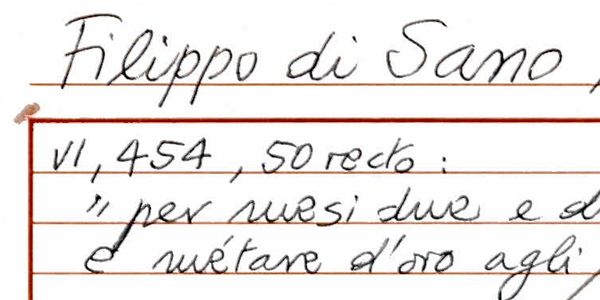 Filippo di Sano,
VI, 454, 50 recto:
" per mesi due e d
e métare d'oro agli